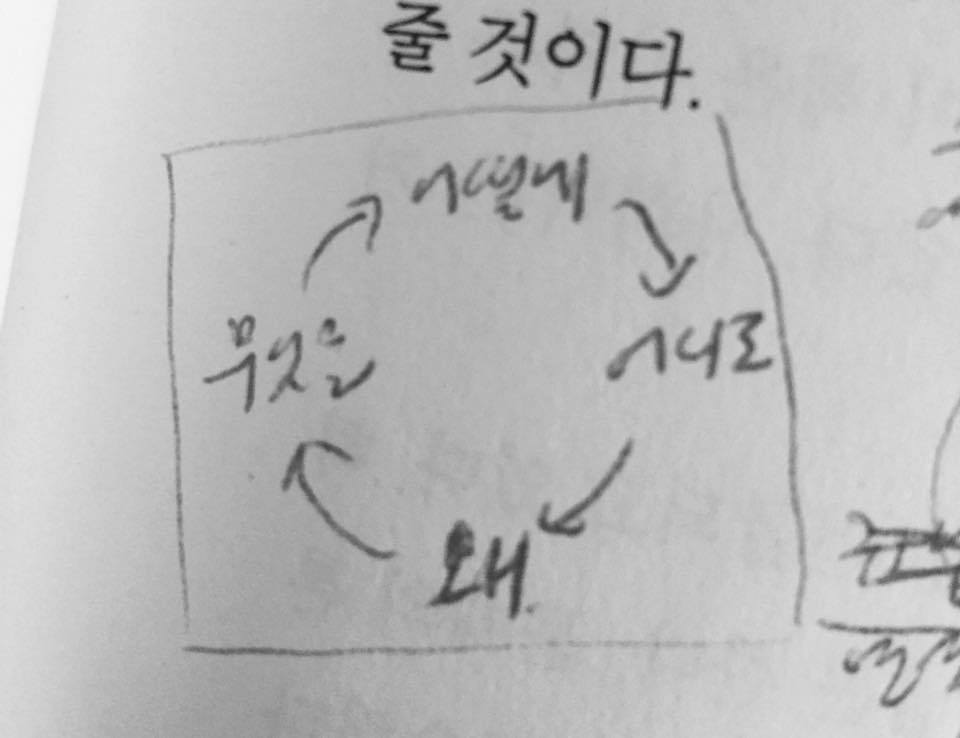 줄 것이다.
어떻게
무엇을
어디로
왜